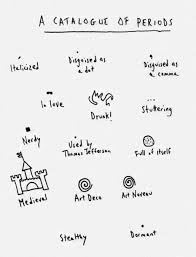 A CATALOGUE OF PERIODS
Italicized
Disguised as
a dot
Disguised as
a comma
In love
Drunk!
Stuttering
Nerdy
Used by
Thomas Jefferson
Full of itself
Medieval
Art Deco
Art Nouveau
Stealthy
Dormant